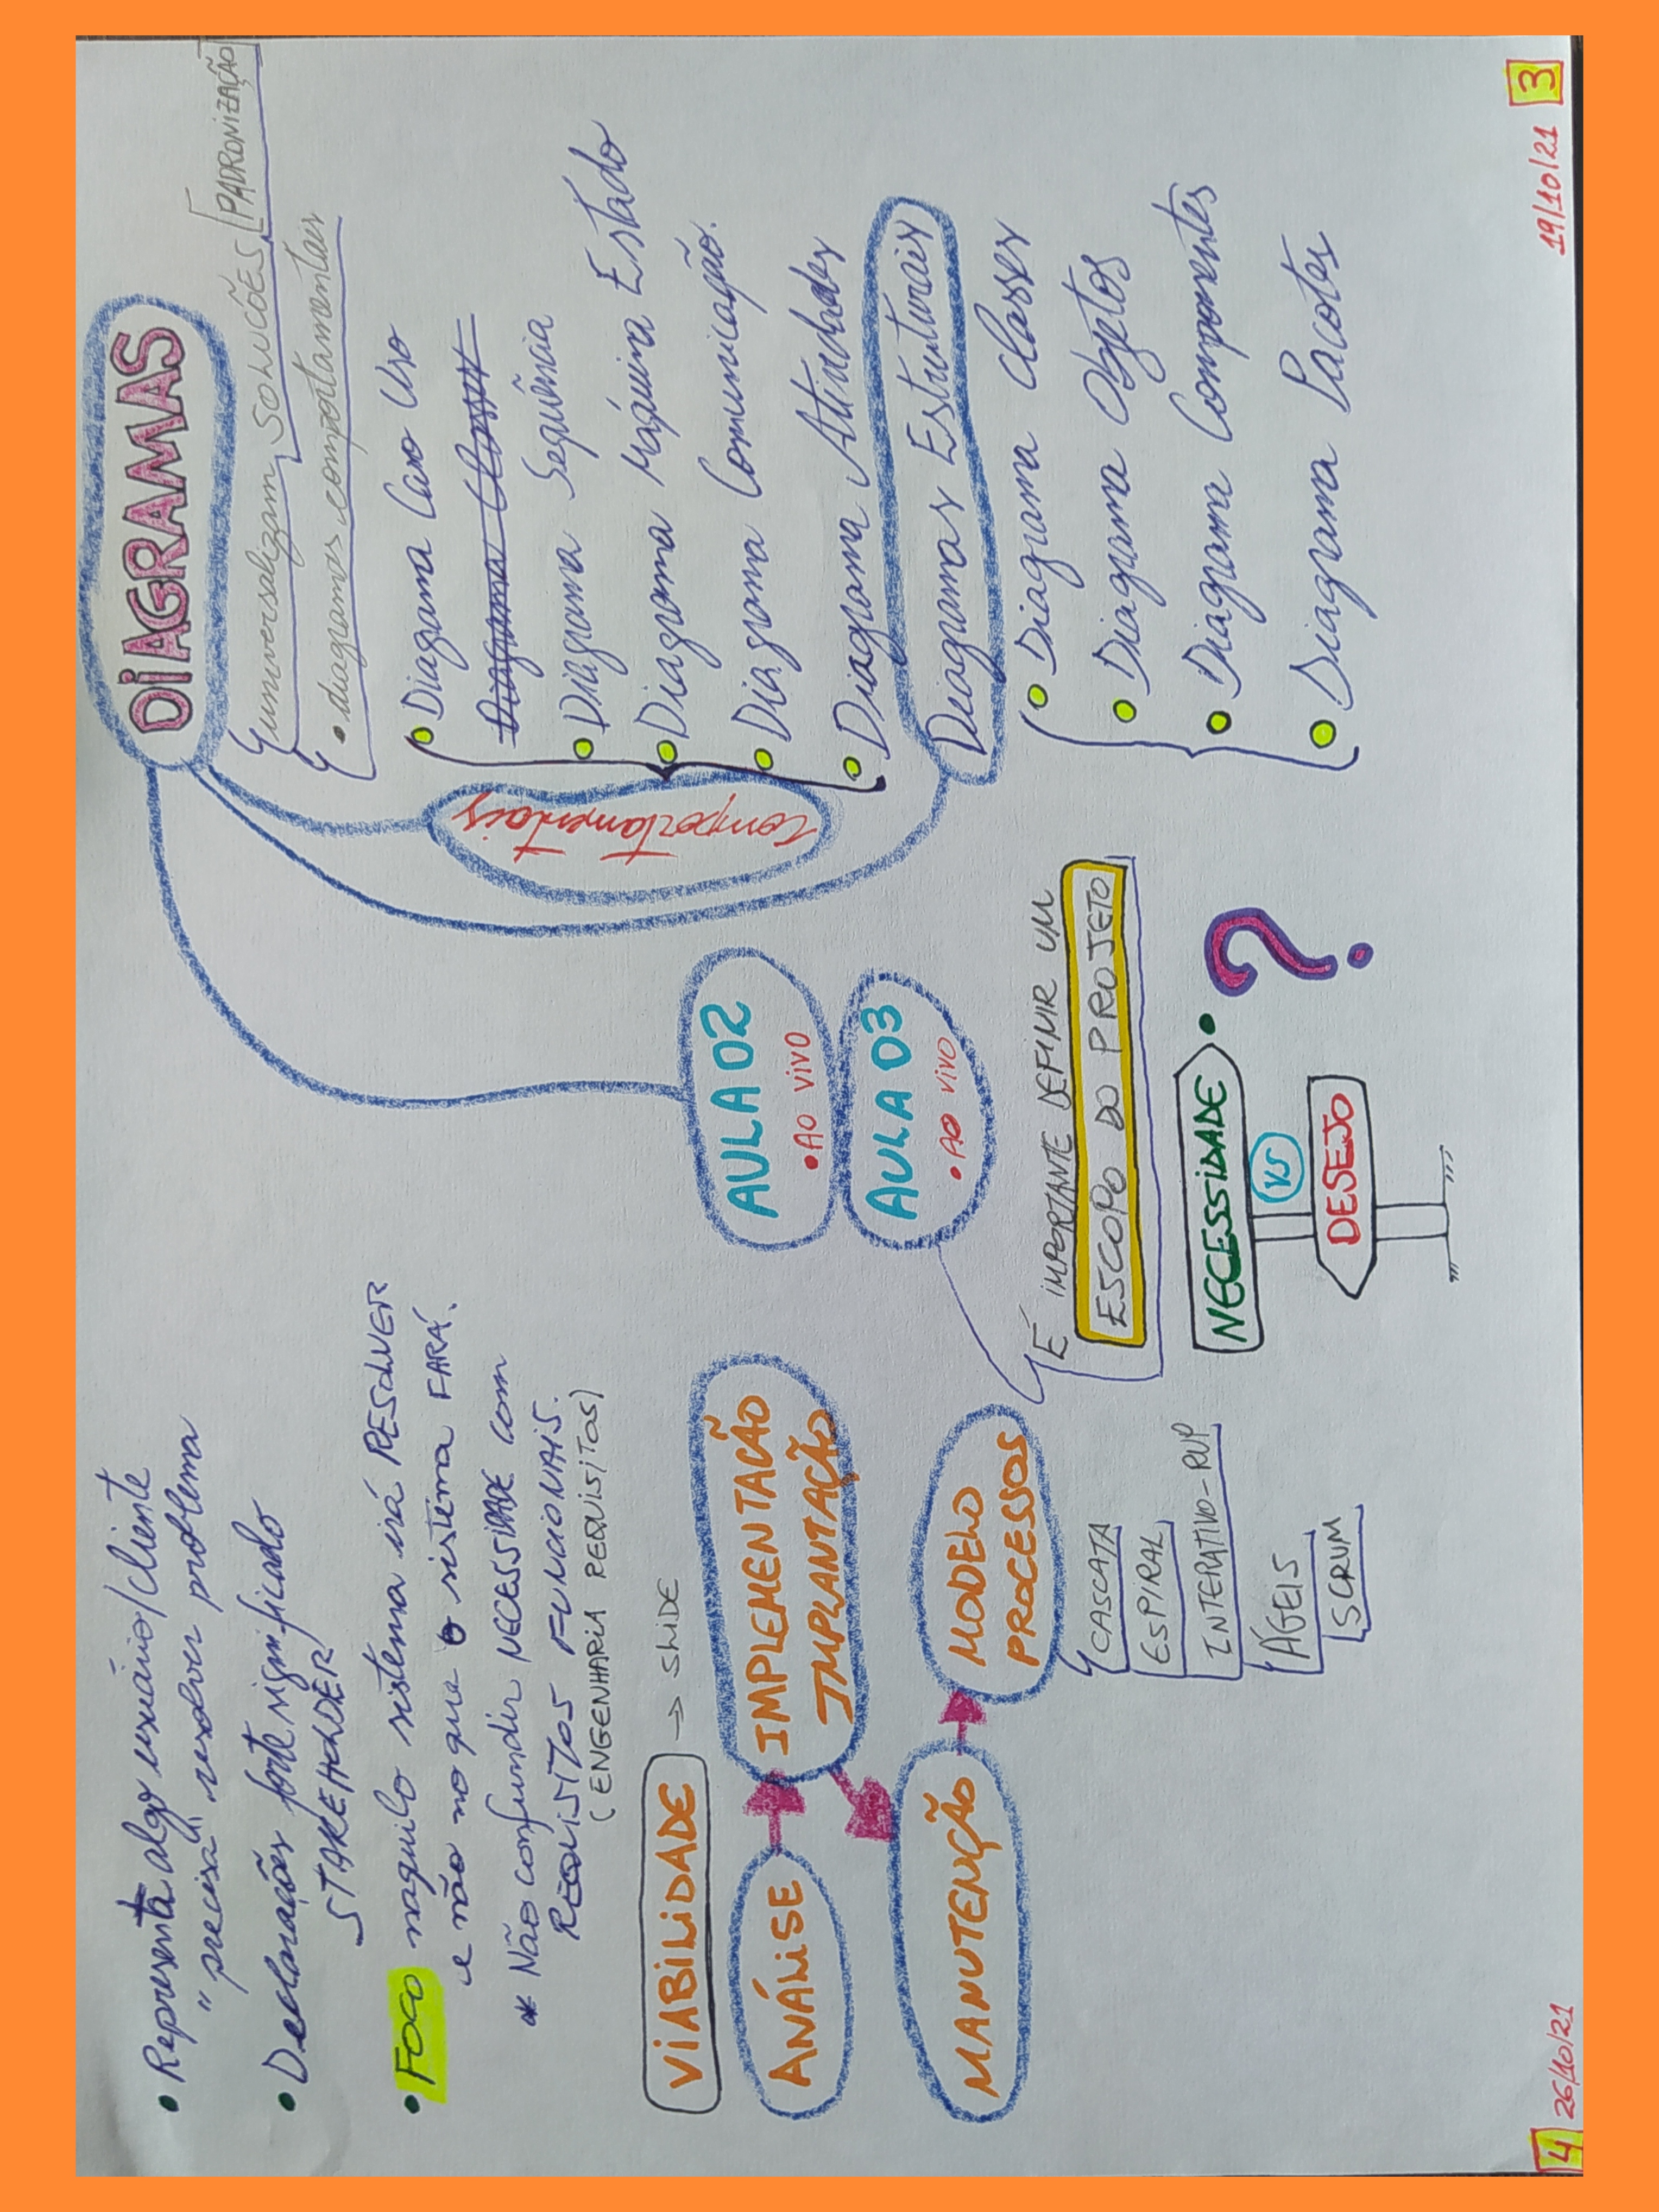 • Representa algo usuário/cliente
"precisa" resolver problema
• Declarações forte significado
STAKEHOLDER
• FOCO naquilo sistema irá RESOLVER
e não no que o sistema FARÁ.
* Não confundir NECESSIDADE com
REQUISITOS FUNCIONAIS.
(ENGENHARIA REQUISITOS)
VIABILIDADE → SLIDE
ANÁLISE
IMPLEMENTAÇÃO
IMPLANTAÇÃO
MANUTENÇÃO
MODELO
PROCESSOS
CASCATA
ESPIRAL
INTERATIVO-RUP
ÁGEIS
SCRUM
4 26/10/21
AULA 02
• AO VIVO
AULA 03
• AO VIVO
É IMPORTANTE DEFINIR UM
ESCOPO DO PROJETO
NECESSIDADE •
VS
DESEJO
?
DIAGRAMAS
universalizam SOLUCÕES [PADRONIZAÇÃO]
• diagramas comportamentais
Comportamentais
• Diagrama Caso Uso
Diagrama Classes
• Diagrama Sequência
• Diagrama Máquina Estado
• Diagrama Comunicação.
• Diagrama Atividades
Diagramas Estruturais
• Diagrama Classes
• Diagrama Objetos
• Diagrama Componentes
• Diagrama Pacotes
19/10/21 3